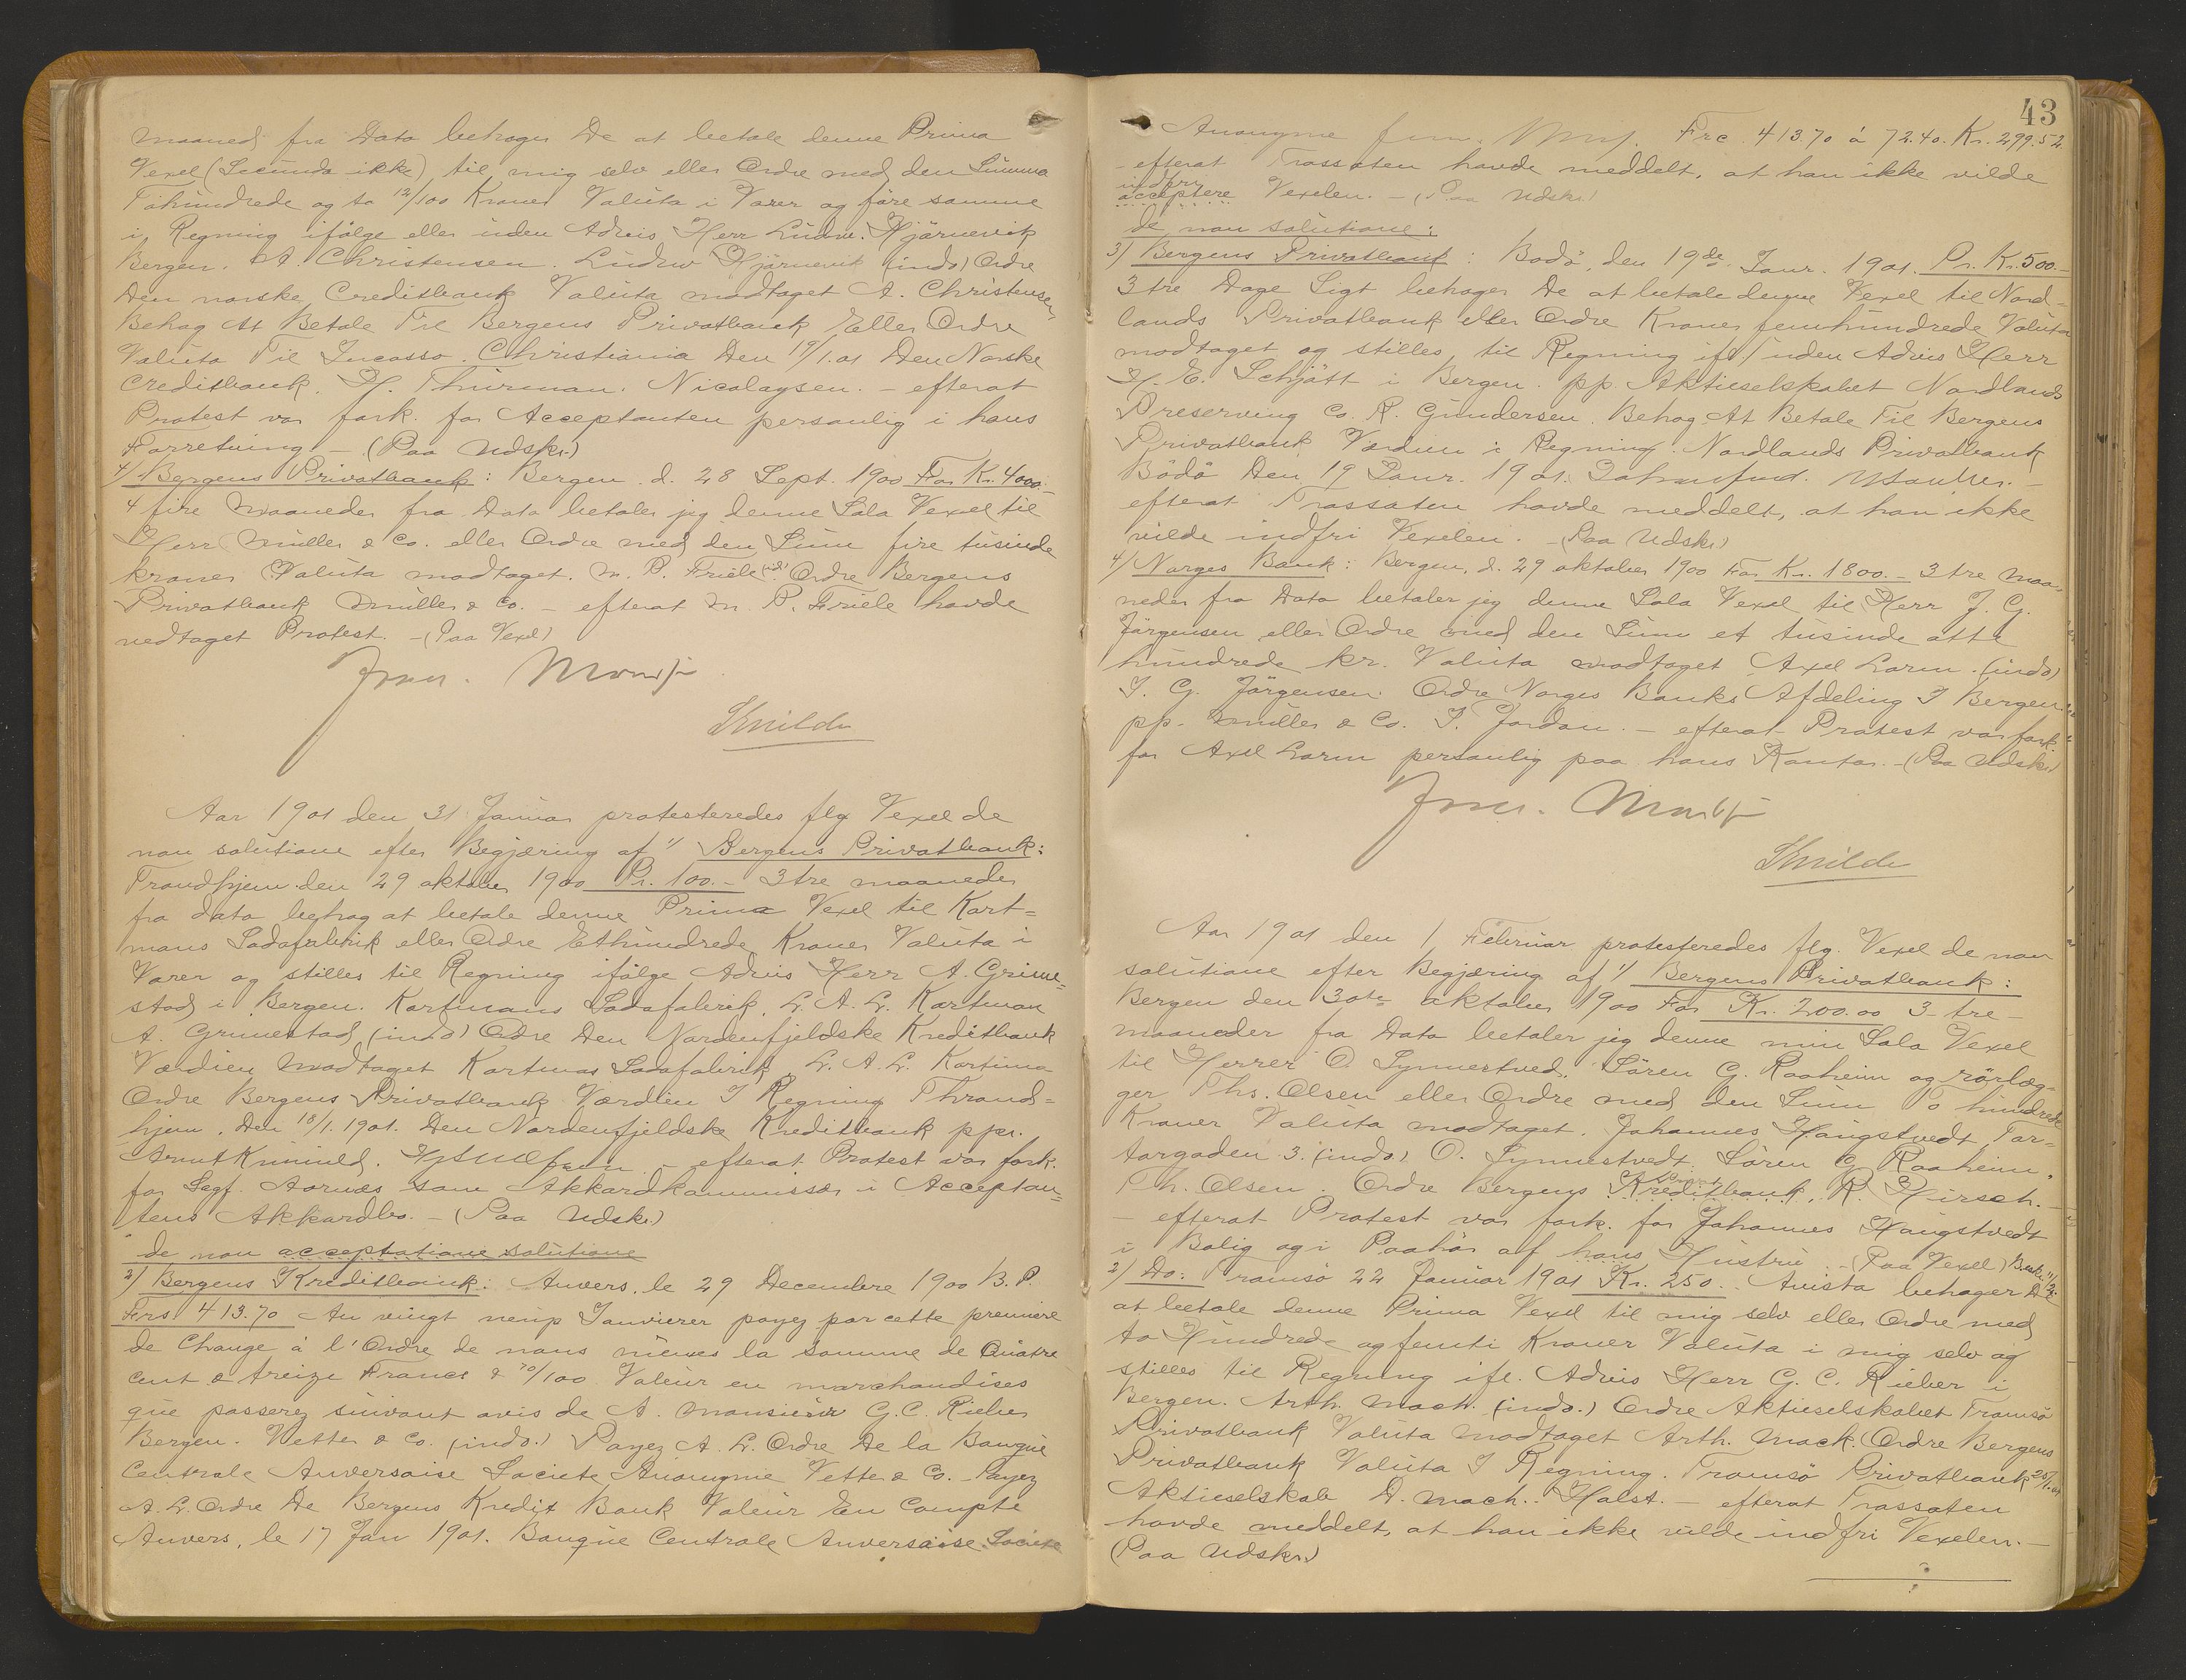 maaned fra Dato behager De at betale denne Prima
Vexel (Secunda ikke), til mig selv eller Ordre med den Summa
Tohundrede og to 12/100 Kroner Valuta i Varer og føre samme
i Regning ifølge eller uden Advis Herr Ludw. Hjärnevik
Bergen. A Christensen Ludw Hjärnevik (indo) Ordre
Den norske Creditbank Valuta modtaget A. Christensen
Behag At Betale Til Bergens Privatbank Eller Ordre
Valuta Til Incasso. Christiania Den 19/1.01 Den Norske
Creditbank. H. Thurman. Nicolaysen. – efterat
Protest var fork. for Acceptanten personlig i hans
Forretning – (Paa Udskr.)
4/ Bergens Privatbank: Bergen d. 28 Sept. 1900 For Kr. 4000.–
4 fire Maaneder fra Dato betaler jeg denne Sola Vexel til
Herr Müller & Co. eller Ordre med den Sum fire tusinde
kroner Valuta modtaget. M. P. Friele (ind) Ordre Bergens
Privatbank Müller & Co. – efterat M. P. Friele havde
vedtaget Protest. – (Paa Vexel)
Smilde
Aar 1901 den 31 Januar protesteredes flg Vexel de
non solutione efter Begjæring af 1/ Bergens Privatbank:
Trondhjem den 29 oktober 1900 Pr. 100.– 3 tre maaneder
fra dato behag at betale denne Prima Vexel til Kort=
mans Sodafabrik eller Ordre Ethundrede Kroner Valuta i
Varer og stilles til Regning ifølge Advis Herr A. Grime=
stad i Bergen. Kortmans Sodafabrik. L. A. L. Kortman
A. Grimestad (indo) Ordre Den Nordenfjeldske Kreditbank
Værdien Modtaget Kortmas Sodafabrik L. A. L. Kortma
Ordre Bergens Privatbank Værdien I Regning Thrond=
hjem. Den 18/1. 1901. Den Nordenfjeldske Kreditbank ppr.
efterat Protest var fork.
for Sagf. Aarnæs som Akkordkommissær i Acceptan=
tens Akkordbo. – (Paa Udskr.)
de non acceptatione solutione
2/ Bergens Kreditbank: Anvers, le 29 Decembre 1900 B. P.
Frs 413.70 Au vingt neuf Janvierer payez par cette premiere
de Change à l'Ordre de nous mêmes la somme de Quatre
cent & treize Francs & 70/100 Valeur en marchandises
que passerez suivant avis de A. Monsieur G. C. Rieber
Bergen. Vetter & Co. (indo.) Payez A. L. Ordre De la Banque
Centrale Anversoise Societe Anonyme Vetter & Co. – Payez
A. L. Ordre De Bergens Kredit Bank Valeur En Compte
Anvers, le 17 Jan 1901. Banque Centrale Anversoise Societe
43
Anonyme Frc. 413.70 à 72.40. Kr. 299.52
– efterat Trassaten havde meddelt, at han ikke vilde
indfri
acceptere Vexelen. – (Paa Udskr.)
de non solutione:
3/ Bergens Privatbank: Bodø, den 19de Janr. 1901. Pr. Kr. 500.–
3 tre Dage Sigt behager De at betale denne Vexel til Nord=
lands Privatbank eller Ordre Kroner femhundrede Valuta
modtaget og stilles til Regning ifl./uden Advis Herr
H. E. Schjött i Bergen. pp. Aktieselskabet Nordlands
Preserving Co. R. Gundersen. Behag At Betale Til Bergens
Privatbank Værdien i Regning. Nordlands Privatbank
Bodö Den 19 Janr. 1901.
efterat Trassaten havde meddelt, at han ikke
vilde indfri Vexelen. – (Paa Udskr.)
4/ Norges Bank: Bergen, d. 29 oktober 1900 For Kr. 1800.– 3 tre Maa=
neder fra Dato betaler jeg denne Sola Vexel til Herr J. G.
Jörgensen eller Ordre med den Sum et tusinde otte
hundrede kr. Valuta modtaget Axel Lorm. (indo)
J. G. Jörgensen. Ordre Norges Banks Afdeling I Bergen.
pp. Müller & Co. J. Jordan. – efterat Protest var fork.
for Axel Lorm personlig paa hans Kontor. – (Paa Udskr.)
Smilde
Aar 1901 den 1 Februar protesteredes flg. Vexel de non
solutione efter Begjæring af 1/ Bergens Privatbank:
Bergen den 30te oktober 1900 For Kr. 200.00 3 – tre –
maaneder fra Dato betaler jeg denne min Sola Vexel
til Herrer O. Synnestved, Sören G. Raaheim og rörlæg=
ger Ths. Olsen eller Ordre med den Sum To hundrede
Kroner Valuta modtaget. Johannes Haugstvedt, Tor=
torgaden 3. (indo) O. Synnestvedt. Sören G. Raaheim.
Th. Olsen. Ordre Bergens Kreditbank. R. Hirsch. –
– efterat Protest var fork. for Johannes Haugstvedt
i Bolig og i Paahør af hans Hustru. – (Paa Vexel)
2/ Do: Tromsö 22 Januar 1901 Kr. 250. Avista behager De
at betale denne Prima Vexel til mig selv eller Ordre med
to Hundrede og femti Kroner Valuta i mig selv og
stilles til Regning ifl. Advis Herr G. C. Rieber i
Bergen. Arth. Mack. (indo.) Ordre Aktieselskabet Tromsö
Privatbank Valuta Modtaget Arth. Mack. Ordre Bergens
Privatbank Valuta I Regning. Tromsö Privatbank 25/1.01
Aktieselskab D. Mach. Holst. efterat Trassaten
havde meddelt, at han ikke vilde indfri Vexelen. –
(Paa Udskr.)